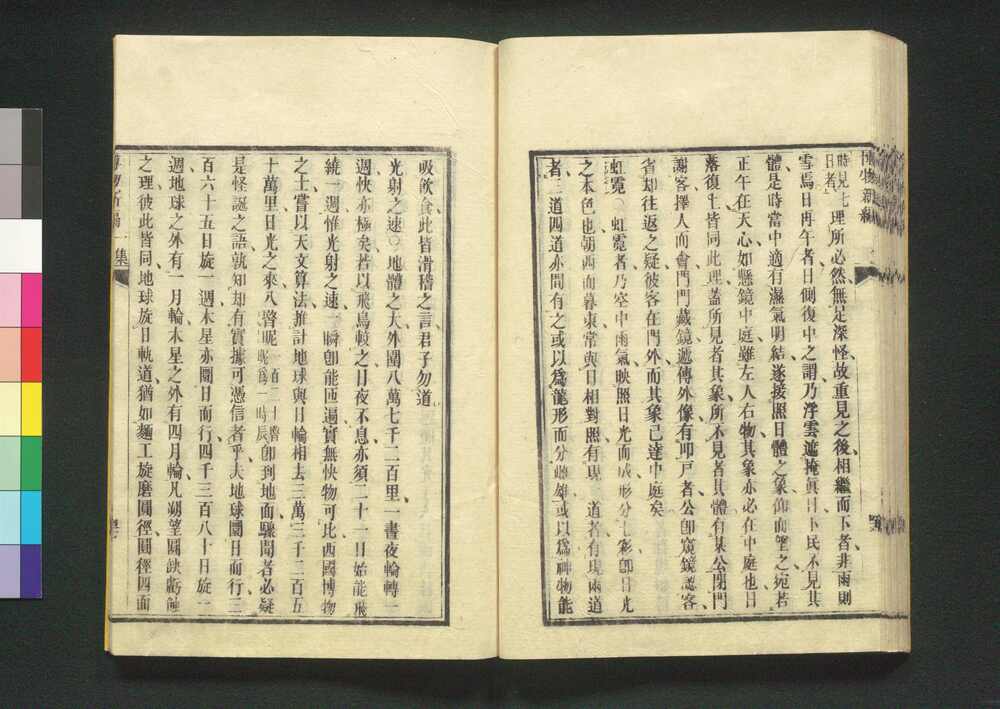 博物新編
時見七
日者、理所必然、無足深怪、故重見之後、相繼而下者、非雨則
雪焉、日再午者、日側復中之謂、乃浮雲遮掩眞日、下民不見其
體、是時當中適有濕氣明結、遂接照日體之象、仰而望之、宛若
正午在天心、如懸鏡中庭、雖左人右物、其象亦必在中庭也、日
落復上、皆同此理、蓋所見者其象、所不見者其體、有某公閉門
謝客、擇人而會、門門藏鏡、遞傳外像、有叩戶者、公卽窺鏡認客、
省却往返之疑、彼客在門外、而其象已達中庭矣
虹霓○虹霓者、乃空中雨氣映照日光而成形、分七彩、卽日光
之本色也、朝西而暮東、常與日相對照、有現一道者、有現兩道
者、三道四道、亦間有之、或以爲龍形而分雌雄、或以爲神物能
吸飲食、此皆滑稽之言、君子勿道
光射之速○地體之大、外圍八萬七千二百里、一晝夜輪轉一
週、快亦極矣、若以飛鳥較之、日夜不息、亦須二十一日始能飛
繞一週、惟光射之速、一瞬卽能匝遍、實無快物可比、西國博物
之士、嘗以天文算法、推計地球與日輪相去三萬三千二百五
十萬里、日光之來、八瞥呢一百二十瞥呢爲一時辰卽到地面、驟聞者必疑
是怪誕之語、孰知却有實據可憑信者乎、夫地球圜日而行、三
百六十五日旋一週、木星亦圜日而行、四千三百八十日旋一
週、地球之外有一月輪、木星之外有四月輪、凡朔望圓缺虧蝕
之理、彼此皆同、地球旋日軌道、猶如麵工旋磨圓徑、圓徑四面
博物新編一集